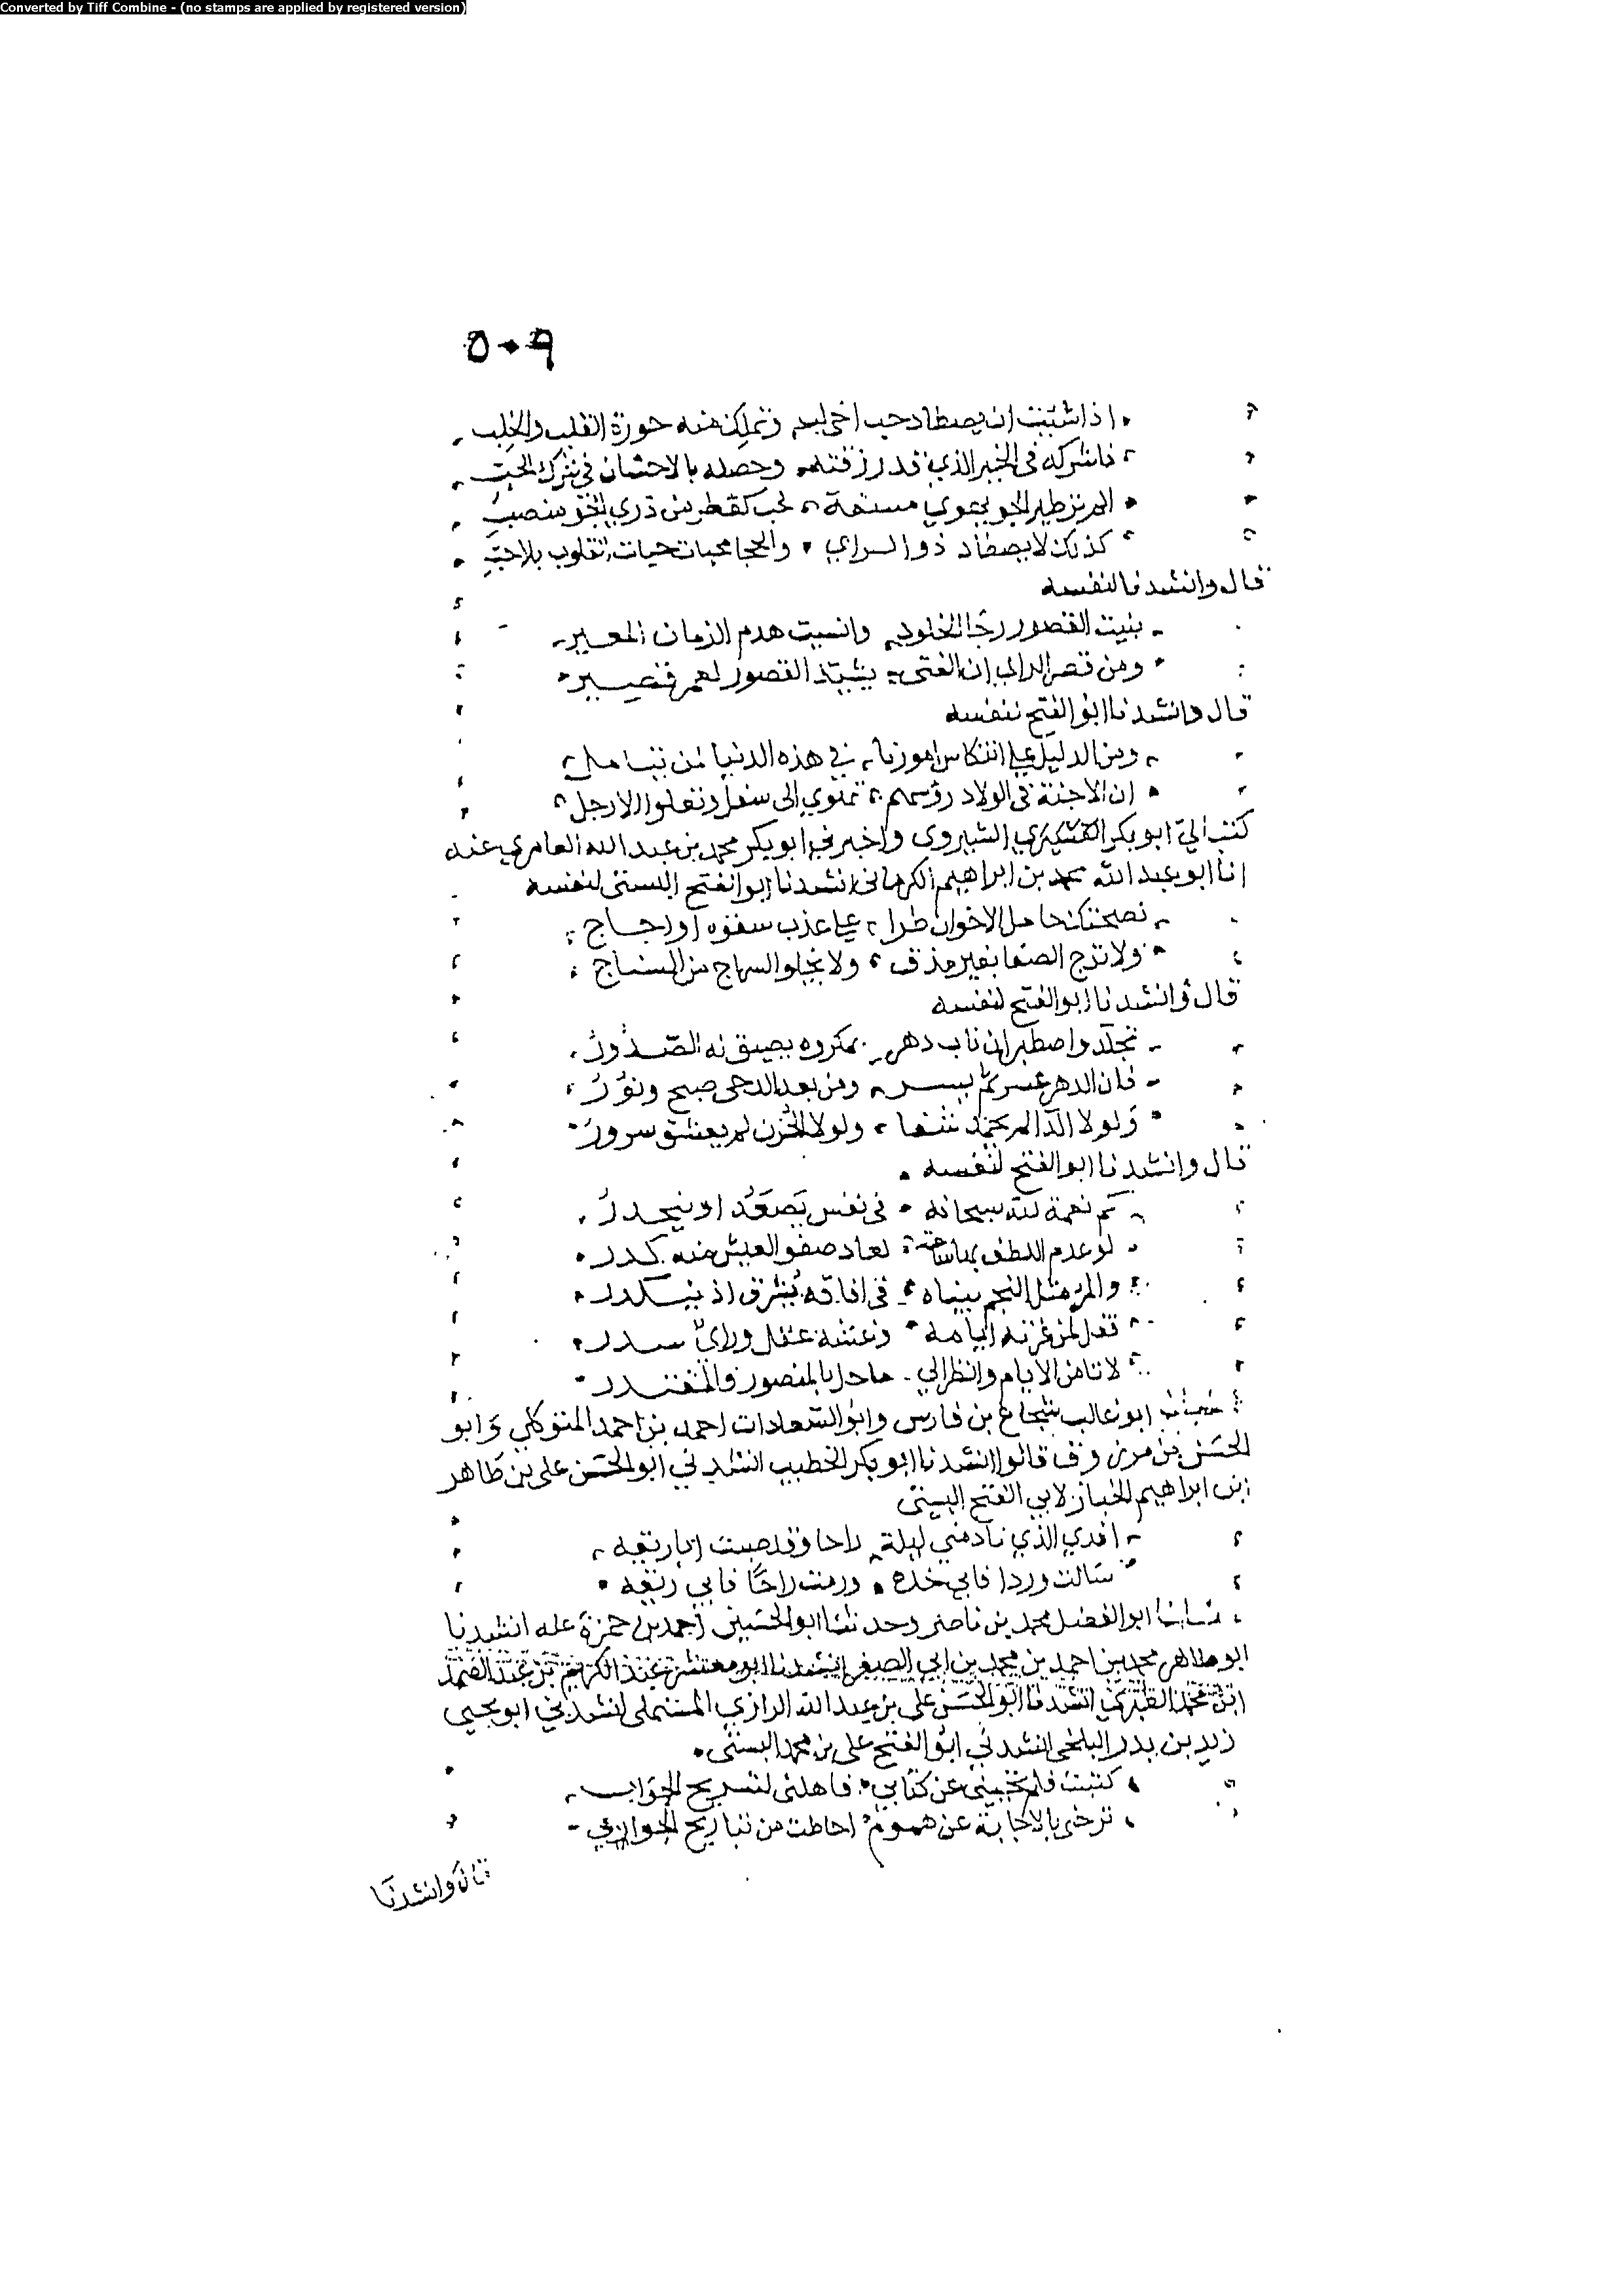 Converted by Tiff Combine - (no stamps are applied by registered version)
٥٠٩
اذا شئت ان يصطاد حب اخي لب وتملك منه حوزة القلب والخلب
فاشركه في الخير الذي قد رزقته وحصله بالاحسان في شرك الحب
الم تر طير الجو يهوي مسفة لحب كقطر من ذري الجو منصب
كذلك لا يصطاد ذو الراي والحجا محبات حبات القلوب بلا حب
قال وانشدنا لنفسه
بنيت القصور رجا الخلود وانسيت هدم الزمان المعير
ومن قصر الراي ان الفتى يشيد القصور لعمر قصير
قال وانشدنا ابو الفتح لنفسه
ومن الدليل على انتكاس امورنا في هذه الدنيا لمن يتامل
ان الاجنة في الولاد رؤسهم تهوي الى سفل وتعلوا الارجل
كتب الي ابو بكر الشيروى واخبرني ابو بكر محمد بن عبد الله العامري عنه
انا ابو عبد الله محمد بن ابراهيم الكرماني انشدنا ابو الفتح البستى لنفسه
نصحتك حامل الاخوان طرا على عذب سقوه او اجاج
ولا ترج الصفا بغير مذق ولا يخلو السراج من السناج
قال وانشدنا ابو الفتح لنفسه
تجلد واصطبر ان ناب دهر بمكروه يضيق له الصدور
فان الدهر عسر ثم يسر ومن بعد الدجى صبح ونور
ولولا الدا لم يحمد شفا ولولا الحزن لم يعشق سرور
قال وانشدنا ابو الفتح لنفسه
كم نعمة لله سبحانه في نفس يصعد او ينحدر
لو عدم اللطف بها ساعة لعاد صفو العيش منه كدر
والمرء مثل النجم بيناه في افاقه يشرق اذ ينكدر
فقل لمن غرته ايامه وعقله عقل وراى سدر
لا تامن الايام وانظر الي ما حل بالمنصور والمقتدر
ابو غالب شجاع بن فارس وابو السعادات احمد بن احمد المتوكلي وابو
الحسن بن مرزوق قالوا انشدنا ابو بكر الخطيب انشدني ابو الحسن على بن طاهر
ابن ابراهيم الخباز لابي الفتح البستى
افدي الذي نادمني ليلة راحا وقد صبت اباريقه
سالت وردا فابي خده ورمت راحا فابي ريقه
ابو الفضل محمد بن ناصر وحدثنا ابو الحسين احمد بن حمزة عنه انشدنا
ابو طاهر محمد بن احمد بن محمد بن ابي الصقر انشدنا ابو معشر عبد الكريم بن عبد الصمد
ابن محمد الطبري انشدنا ابو الحسن على بن عبد الله الرازي المستملى انشدني ابو يحيى
زيد بن بدر البلخى انشدني ابو الفتح على بن محمد البستى
كتبت فلم تجبنى عن كتابي فاهلنى لتسريح الجواب
ترخى بالاجابة عن هموم احاطت من تباريح الجوازي
قال وانشدنا